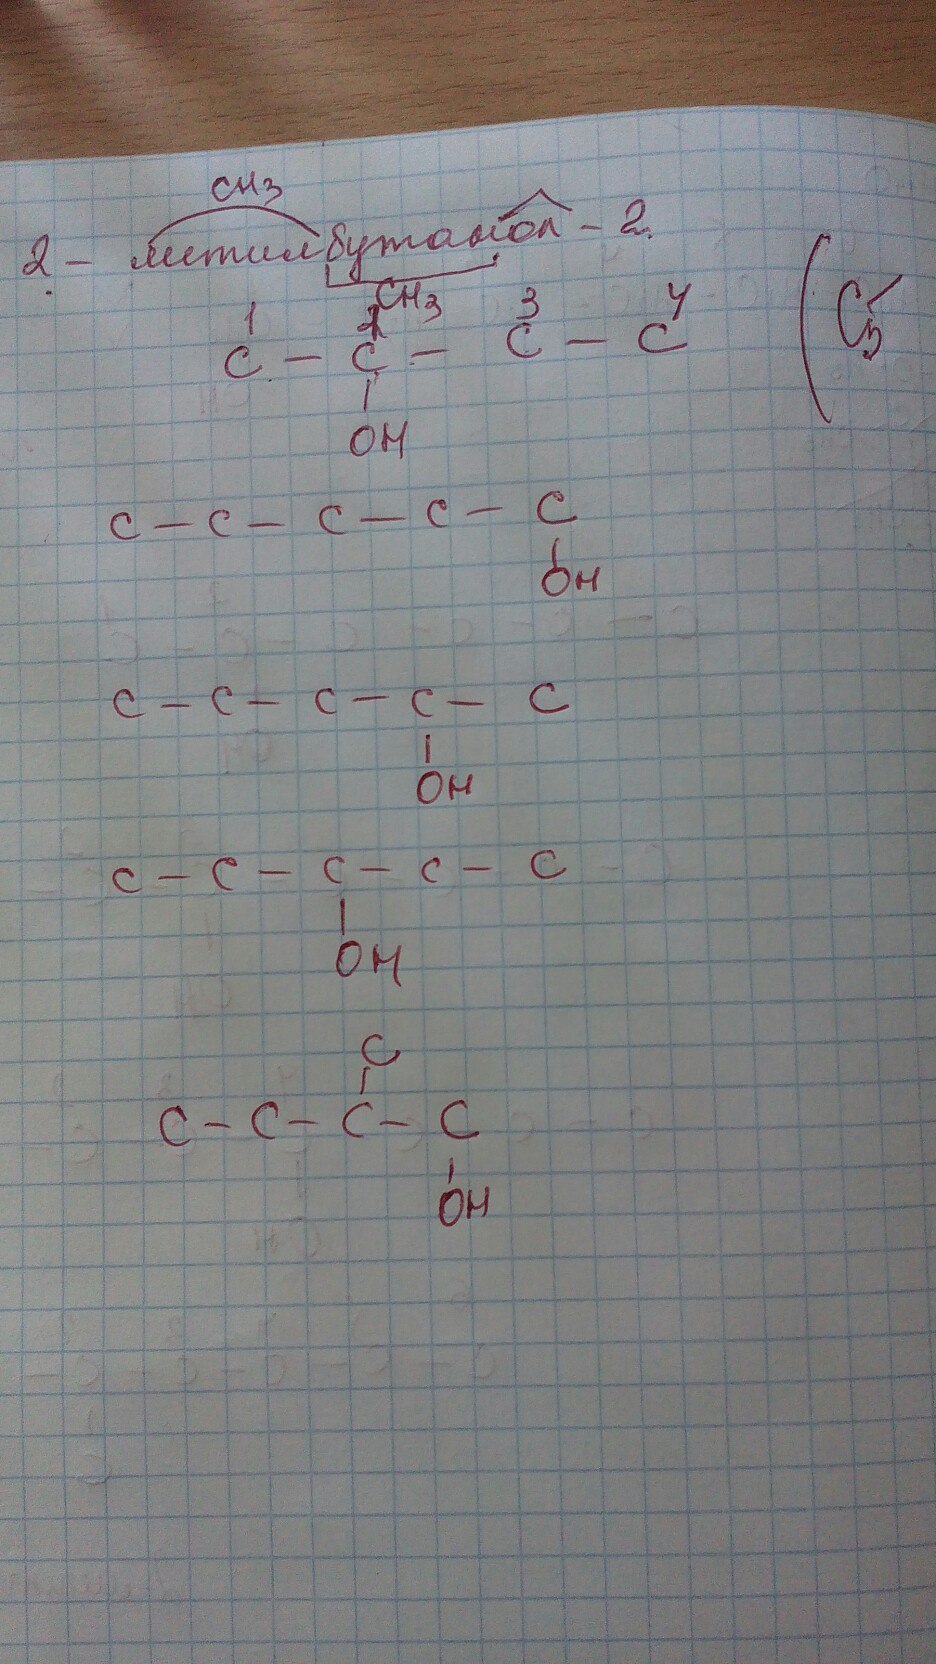 CH3
2 - метилбутанол - 2.
CH3
1 2 3 4
C - C - C - C
OH
( C5
C - C - C - C - C
OH
C - C - C - C - C
OH
C - C - C - C - C
OH
C
C - C - C - C
OH